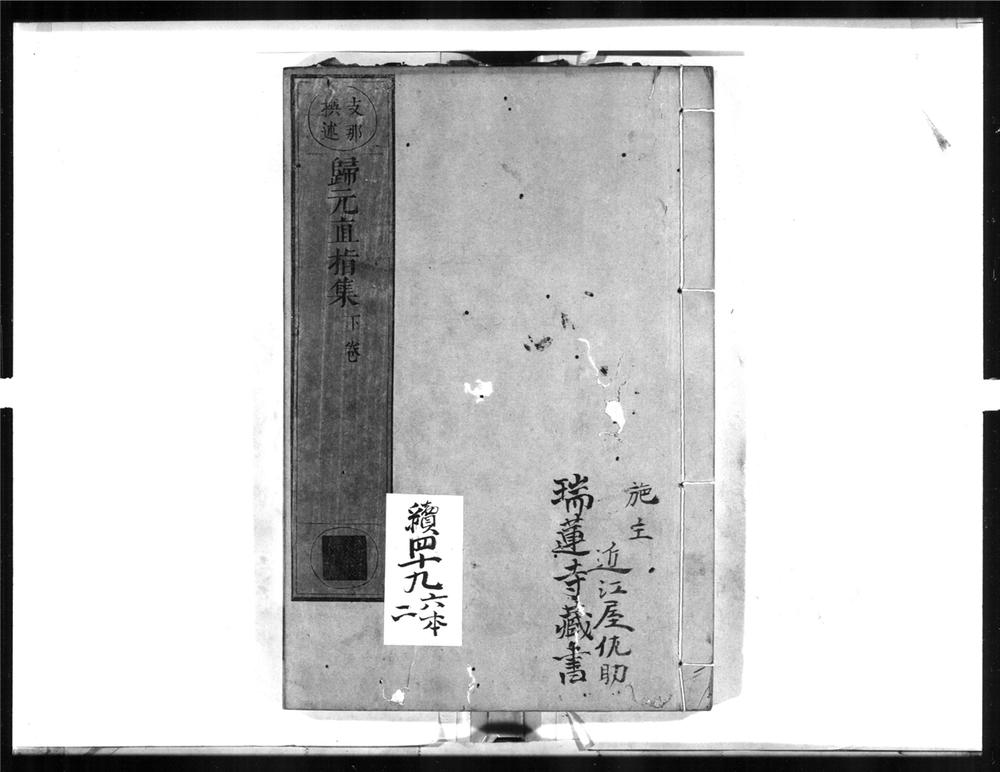 支那
撰述
歸元直指集
下卷
施主
近江屋佐助
瑞蓮寺藏書
續四十九
六本
二